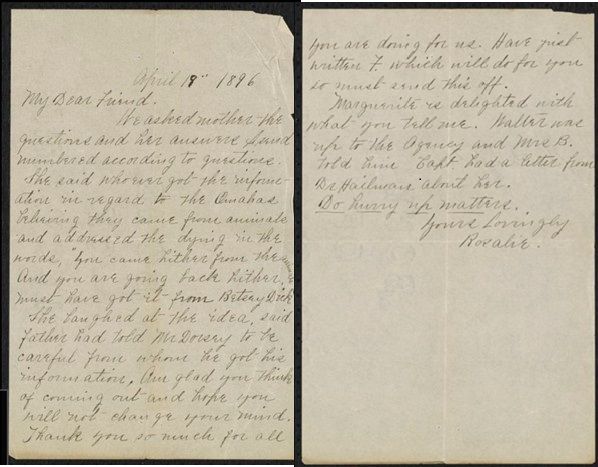 April 19" 1896
My Dear Friend.
We asked mother the
questions and her answers I send
numbered according to questions.
She said who ever got the inform-
ation in regard to the Omahas
believing they came from animals
and addressed the dying in the
words, "You came hither from the animals
And you are going back hither,
must have got it from Betsey Dick
She laughed at the idea, said
father had told Mr Dorsey to be
careful from whom he got his
information. Am glad you think
of coming out and hope you
will not change your mind.
Thank you so much for all
you are doing for us. Have just
written F. which will do for you
so must send this off.
Marguerite is delighted with
what you tell me. Walter was
up to the Agency and Mrs B.
told him Capt had a letter from
Dr Hailman about her.
Do hurry up matters.
Yours Lovingly
Rosalie.